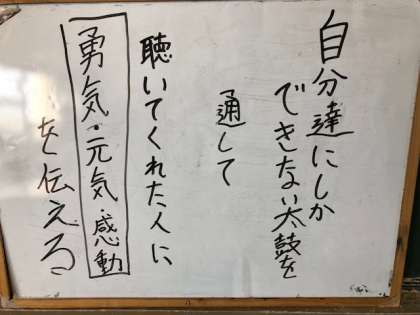 自分達にしか
できない太鼓を
通して
聴いてくれた人に、
勇気・元気・感動
を伝える